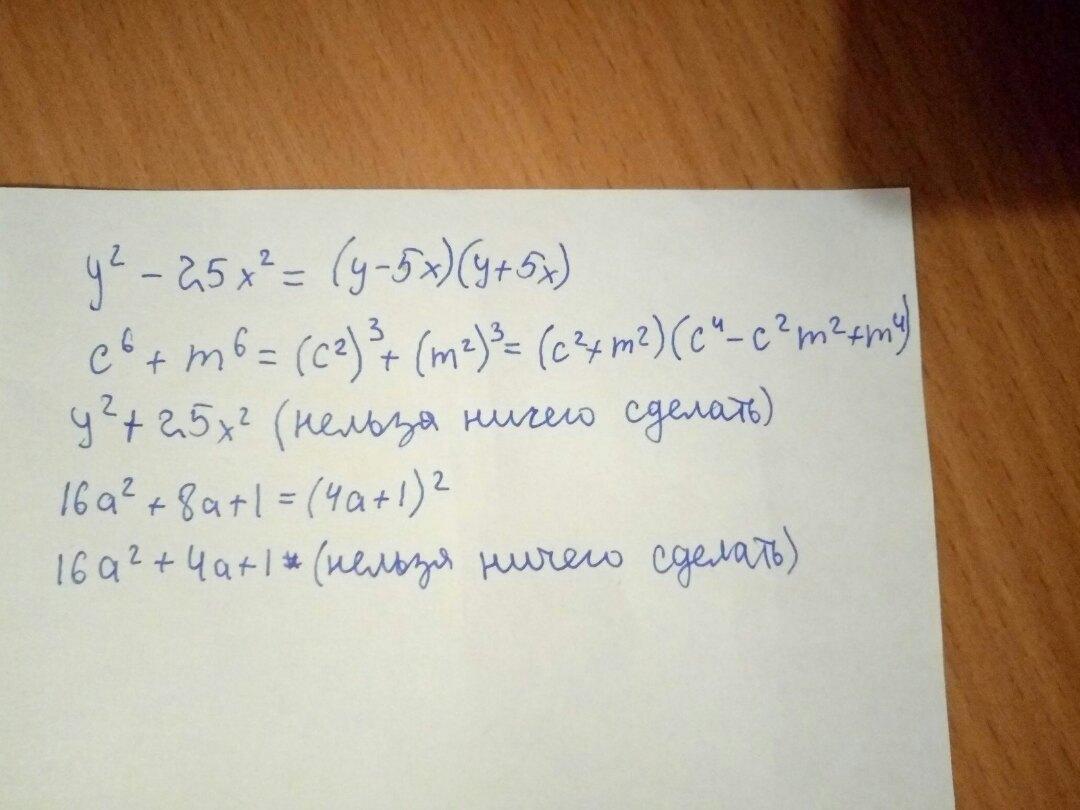 y² - 25x² = (y-5x)(y+5x)
c⁶ + m⁶ = (c²)³ + (m²)³ = (c²+m²)(c⁴-c²m²+m⁴)
y² + 25x² (нельзя ничего сделать)
16a² + 8a + 1 = (4a+1)²
16a² + 4a + 1 (нельзя ничего сделать)